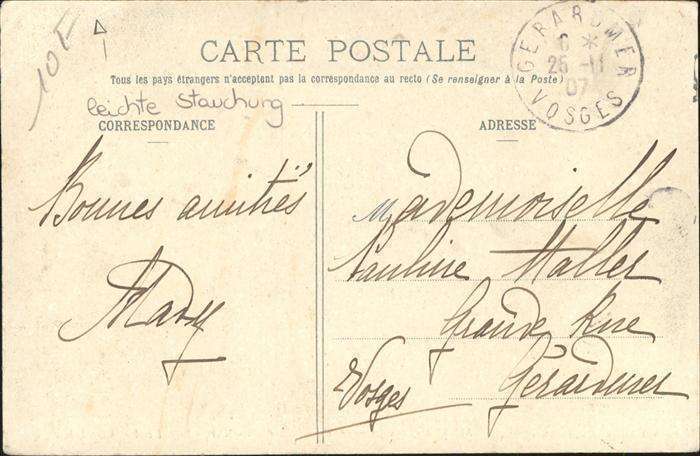 10F
CARTE POSTALE
Tous les pays étrangers n'acceptent pas la correspondance au recto (Se renseigner à la Poste)
leichte Stauchung
CORRESPONDANCE
ADRESSE
GERARDMER
6 *
25 - 11
07
VOSGES
Bonnes amitiés
Mady
Mademoiselle
Pauline Haller
Grande Rue
Gérardmer
Vosges